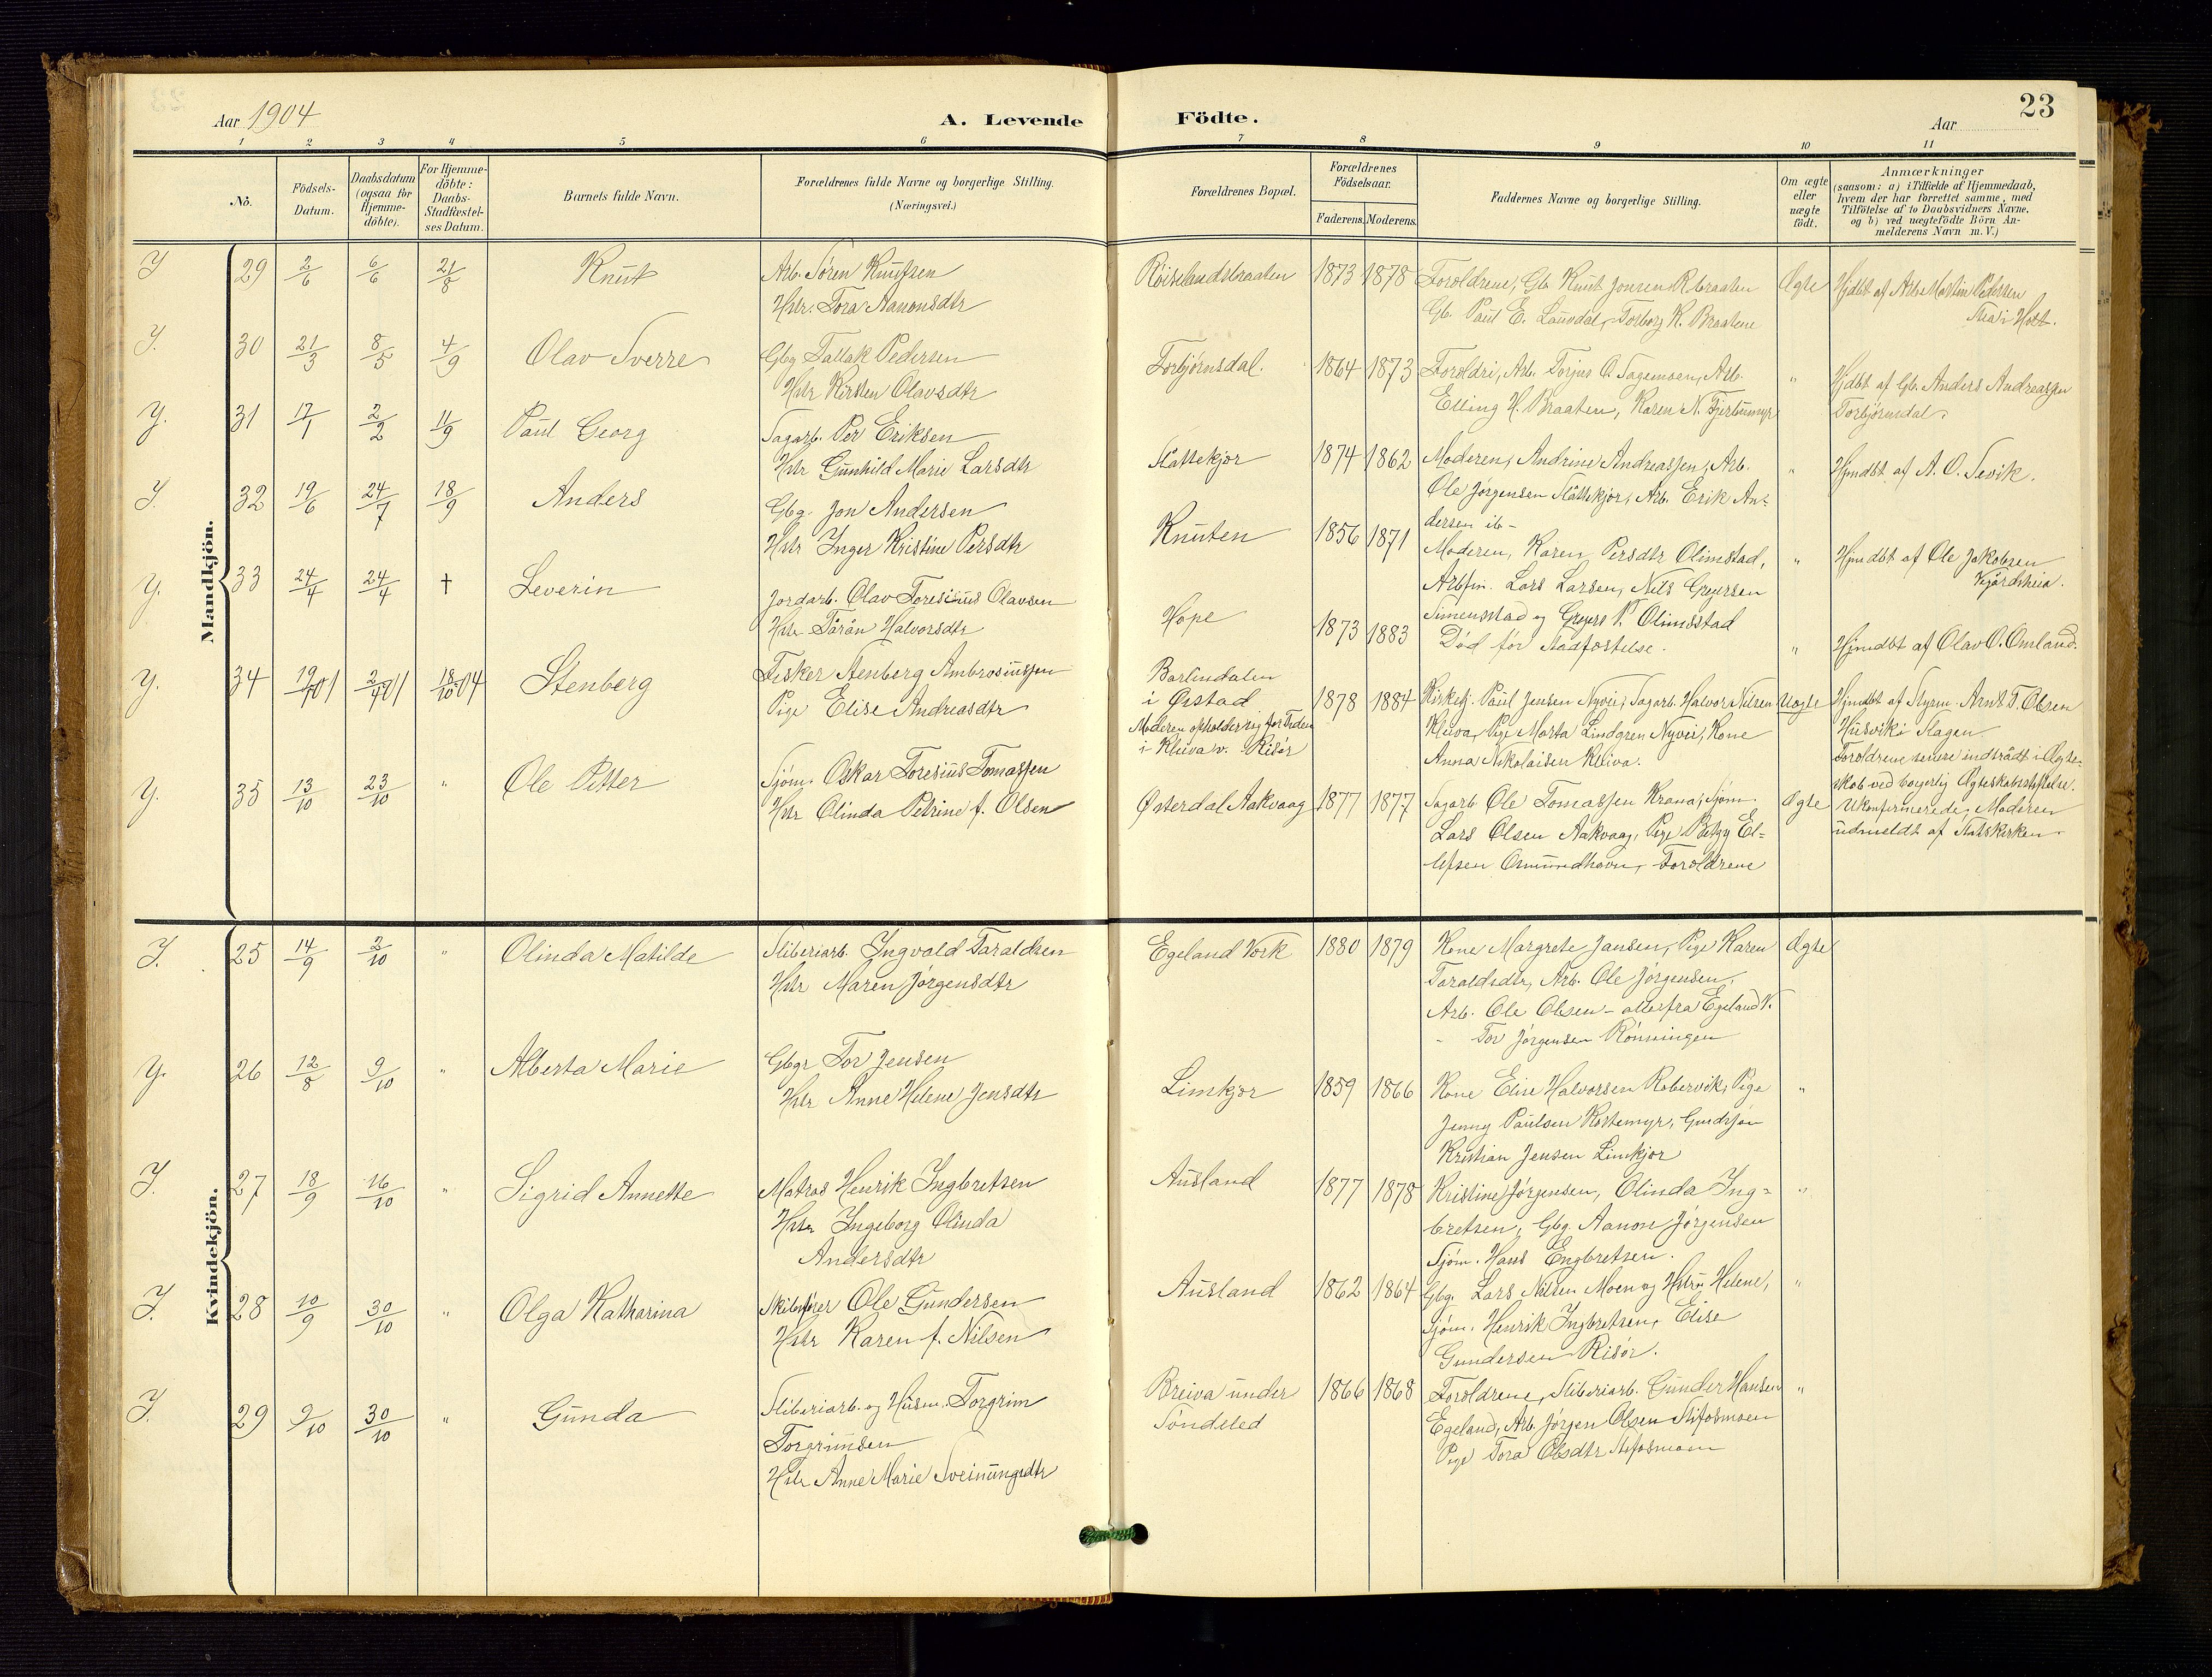 Aar 1904
A. Levende
Födte.
Aar
23
1 2 3 4 5 6 7 8 9 10 11
No.
Födsels-
Datum.
Daabsdatum
(ogsaa for
Hjemme-
döbte).
For Hjemme-
döbte:
Daabs-
Stadfæstel-
ses Datum.
Barnets fulde Navn.
Forældrenes fulde Navne og borgerlige Stilling.
(Næringsvei.)
Forældrenes Bopæl.
Forældrenes
Födselsaar.
Faderens. Moderens.
Faddernes Navne og borgerlige Stilling.
Om ægte
eller
uægte
födt.
Anmærkninger
(saasom: a) i Tilfælde af Hjemmedaab,
hvem der har forrettet samme, med
Tilföielse af to Daabsvidners Navne,
og b) ved uægtefödte Börn An-
melderens Navn m. V.)
Mandkjön.
J 29 2/6 6/6 21/8 Knut
Arb. Søren Knutsen
Hstr. Tora Aanonsdtr
Røiselandsbraaten 1873 1878
Foreldrene, Gb. Knut Jonsen Rbraaten
Gb. Paul E. Lauvdal, Torborg K. Braatene
Ægte
Hjdbt af Arb. Martin Pedersen
Holt.
J. 30 21/3 8/5 4/9 Olav Sverre
Gbg Tallak Pedersen
Hstr Kirsten Olavsdtr
Torbjørnsdal. 1864 1873
Foreldri, Arb. Torjus O. Sagemoen, Arb.
Elling H. Braaten, Karen N.
"
Hjdbt af Gb. Anders Andreassen
Torbjørnsdal.
J. 31 17/1 2/2 11/9 Paul Georg
Sagarb. Per Eriksen
Hstr Gunhild Marie Larsdtr
Slattekjør 1874 1862
Moderen, Andrine Andreassen, Arb.
Ole Jørgensen Slattekjør, Arb. Erik An=
dersen ib-
"
Hjmdbt. af A. O. Sevik.
J. 32 19/6 24/7 18/9 Anders
Gbg. Jon Andersen
Hstr Inger Kristine Persdtr
Knuten 1856 1871
Moderen, Karen Persdtr Olimstad,
Lars Larsen, Nils Greyersen
Simenstad og Greyers P. Olimstad
"
Hjmdbt af Ole Jakobsen
Vegårdsheia.
J. 33 24/4 24/4 † Severin
Jordarb. Olav Toresius Olavsen
Hstr Tårån Halvorsdtr
Hope 1873 1883
Død før stadfæstelse.
"
Hjmdbt af Olav O. Omland.
J. 34 Stenberg
Fisker Stenberg Ambrosiussen
Pige Elise Andreasdtr
Barlindalen
i Ørstad
Moderen opholder sig for Tiden
i Kluva v. Risør
1878 1884
Kirketj. Paul Jensen Nyvei, Sagarb. Halvor Nilsen
Kluva, Pige Marta Lindgren Nyvei, Kone
Anna Nikolaisen Kluva.
Uægte
Hjmdbt af Styrm. Arnt T. Olsen
Husvik i Slagen
Foreldrene senere indtrådt i Ægte-
skab ved borgerlig Ægteskabsstiftelse.
J. 35 13/10 23/10 " Ole Petter
Sjøm. Oskar Toresius Tomassen
Hstr Olinda Petrine f. Olsen
Østerdal Aakvaag 1877 1877
Sagarb Ole Tomassen Krana, Sjøm.
Lars Olsen Aakvaag, Pige Betzy El=
lefsen Osmundhavn, Foreldrene
Ægte
Ukonfirmerede, Moderen
udmeldt af Statskirken.
Kvindekjön.
J. 25 14/9 2/10 " Olinda Matilde
Sliberiarb. Ingvald Taraldsen
Hstr Maren Jørgensdtr
Egeland Verk 1880 1879
Kone Margrete Jansen, Pige Karen
Taraldsdtr, Arb. Ole Jørgensen,
Arb. Ole Olsen - alle fra Egeland V.
- Tor Jørgensen Rønningen
Ægte
J. 26 12/8 9/10 " Alberta Marie
Gbgr Tor Jensen
Hstr Anne Helene Jensdtr
Limkjør 1859 1866
Kone Elise Halvorsen Robervik, Pige
Jenny Paulsen Rostemyr, Gmdsøn
Kristian Jensen Limkjør
"
J. 27 18/9 16/10 " Sigrid Annette
Matros Henrik Ingbretsen
Hstr Ingeborg Olinda
Andersdtr
Ausland 1877 1878
Kristine Jørgensen, Olinda Ing=
bretsen, Gbg. Aanon Jørgensen
Sjøm. Hans Engbretsen.
"
J. 28 10/9 30/10 " Olga Katharina
Skibsfører Ole Gundersen
Hstr Karen f. Nilsen
Ausland 1862 1864
Gbg. Lars Nilsen Moen og Hstr Helene,
Sjøm. Henrik Ingbretsen, Elise
Gundersen Risør.
"
J. 29 9/10 30/10 " Gunda
Sliberiarb. og Husm. Torgrim
Torgrimsen
Hstr Anne Marie Sveinungsdtr
Breiva under
Søndeled
1866 1868
Foreldrene, Sliberiarb. Gunder Hansen
Egeland, Arb. Jørgen Olsen Stifosmoen
Pige Tora Olsdtr Stifosmoen
"